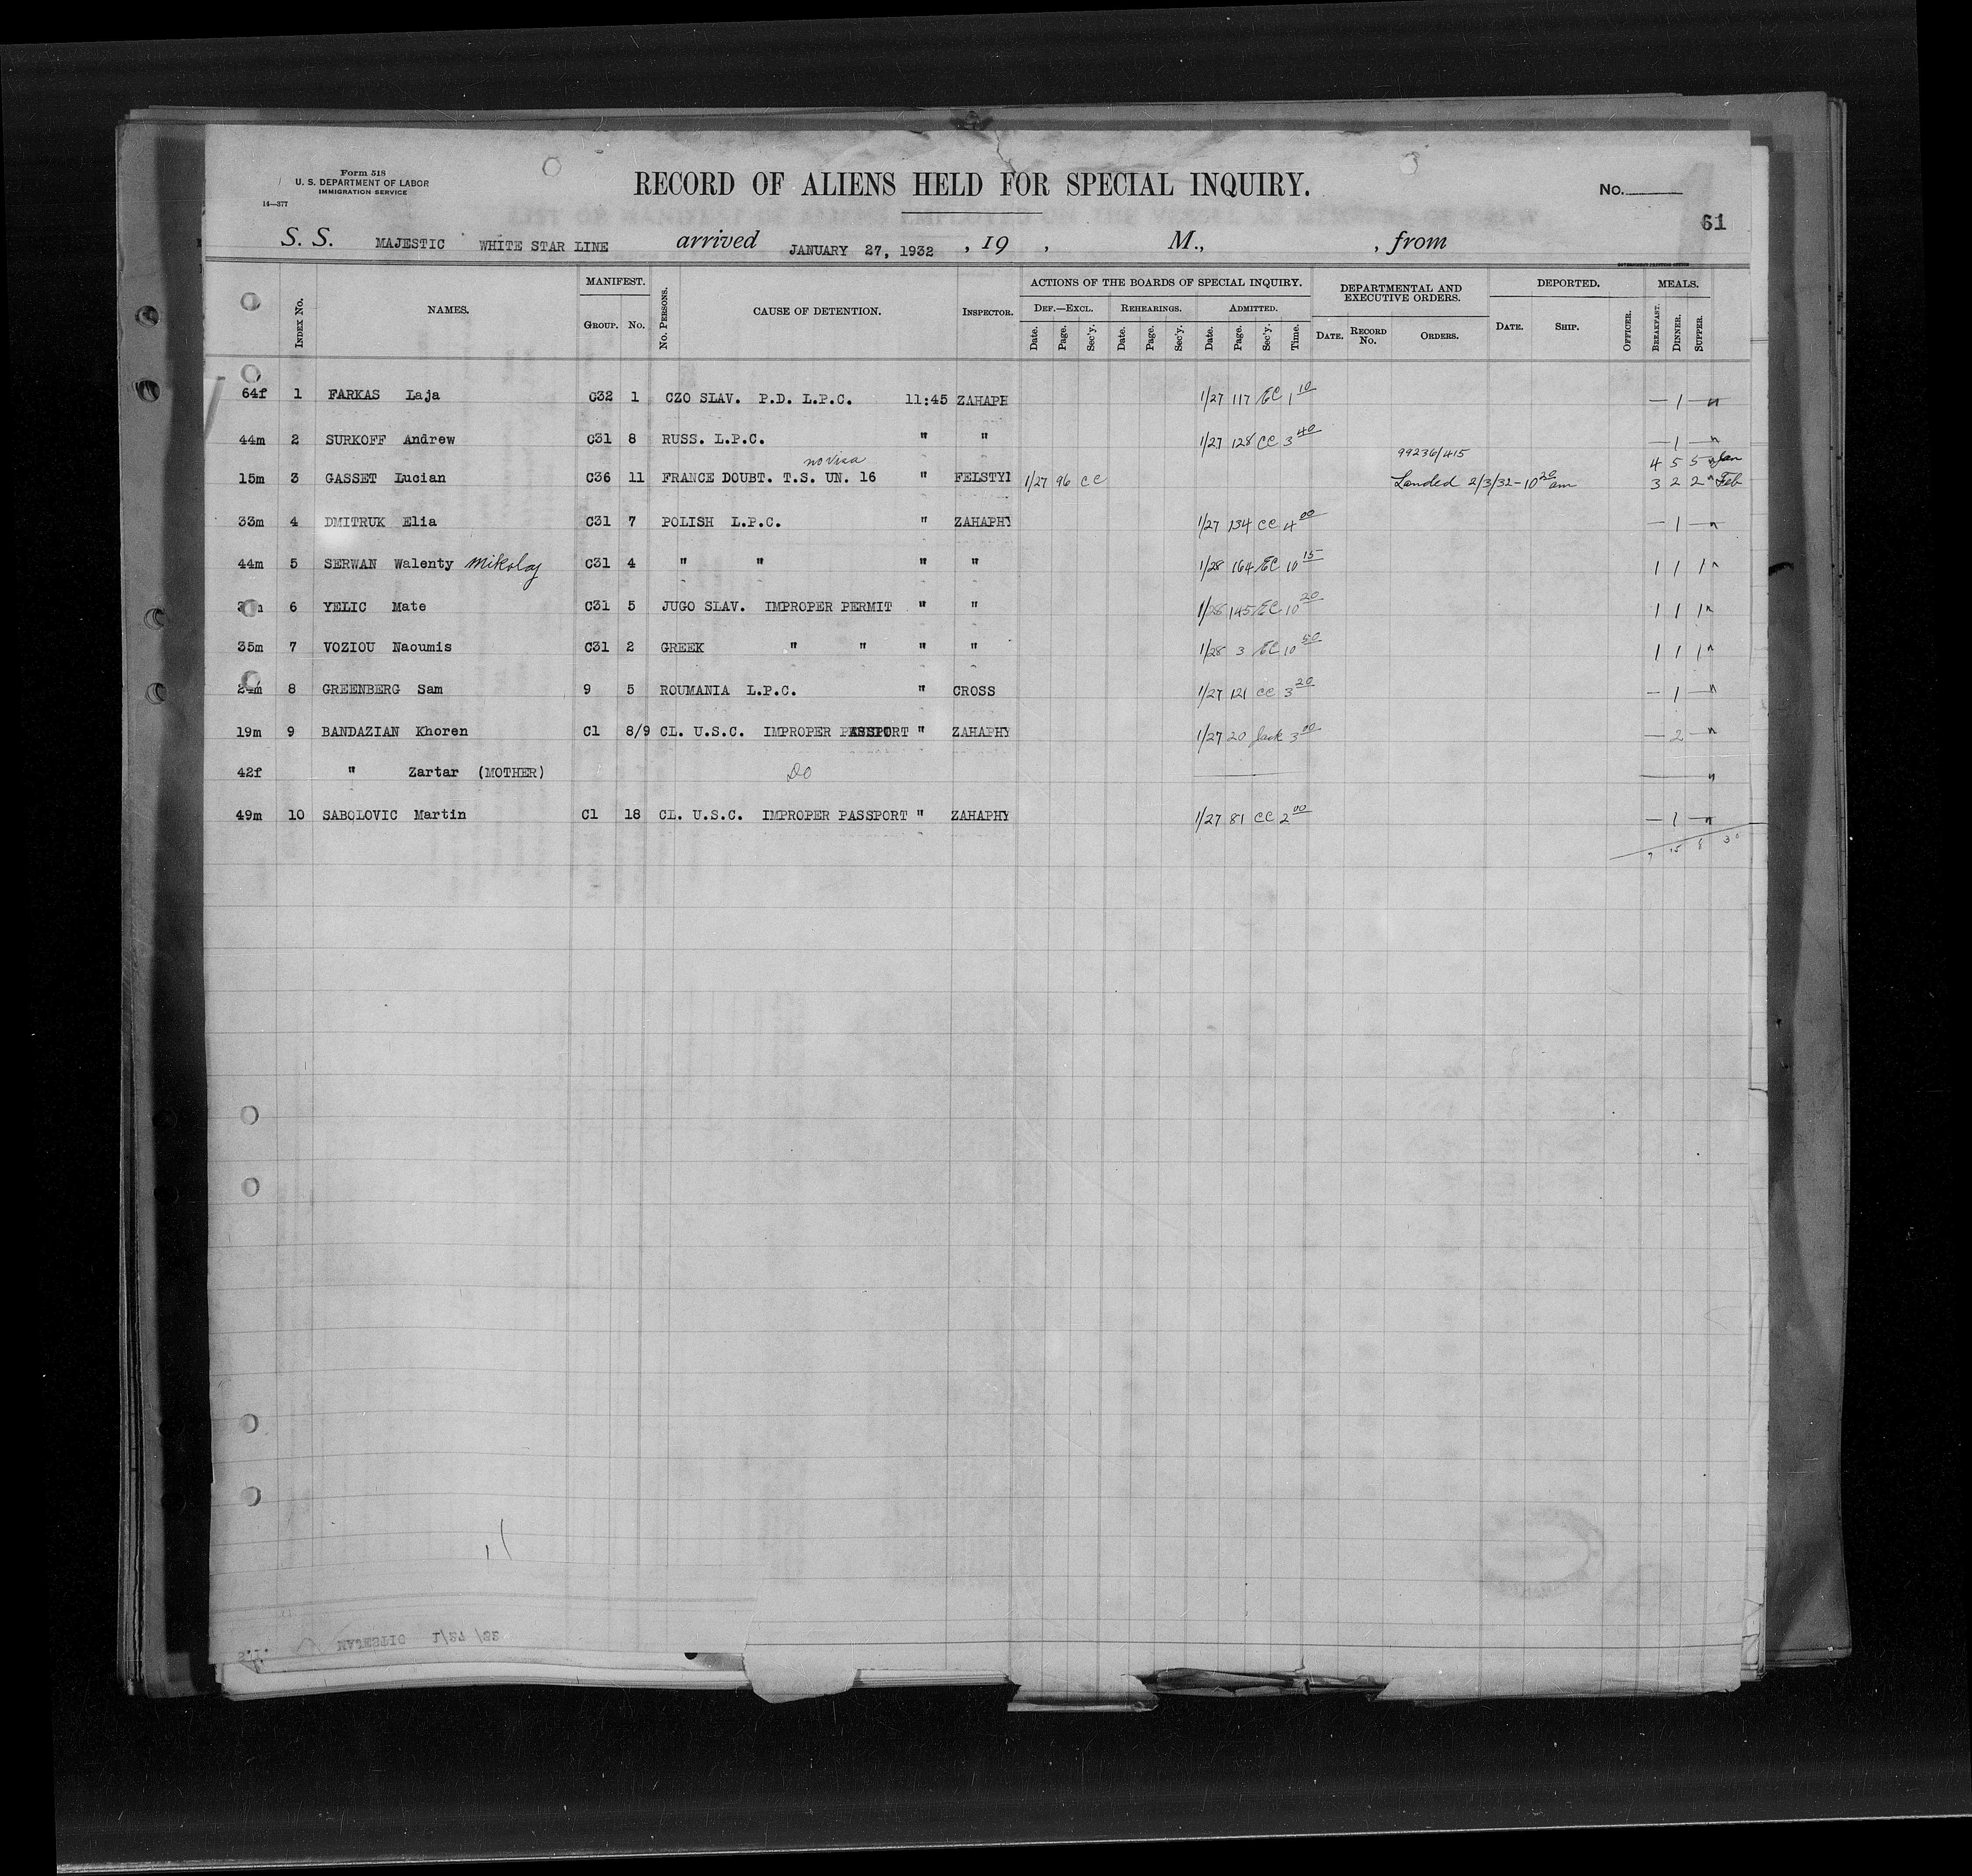 Form 518
U. S. DEPARTMENT OF LABOR
IMMIGRATION SERVICE
14—377
RECORD OF ALIENS HELD FOR SPECIAL INQUIRY.
No.
61
S. S. MAJESTIC WHITE STAR LINE arrived JANUARY 27, 1932 , 19 , M., , from
GOVERNMENT PRINTING OFFICE
INDEX No. NAMES. MANIFEST. GROUP. No. No. PERSONS. CAUSE OF DETENTION. INSPECTOR. ACTIONS OF THE BOARDS OF SPECIAL INQUIRY. DEPARTMENTAL AND EXECUTIVE ORDERS. DEPORTED. MEALS.
DEF.—EXCL. REHEARINGS. ADMITTED.
Date. Page. Sec'y. Date. Page. Sec'y. Date. Page. Sec'y. Time. DATE. RECORD No. ORDERS. DATE. SHIP. OFFICER. BREAKFAST. DINNER. SUPPER.
64f 1 FARKAS Laja C32 1 CZO SLAV. P.D. L.P.C. 11:45 ZAHAPH 1/27 117 EC 1 10 — 1 — "
44m 2 SURKOFF Andrew C31 8 RUSS. L.P.C. " " 1/27 128 CC 3 40 — 1 — "
no visa 99236/415 4 5 5 " Jan
15m 3 GASSET Lucian C36 11 FRANCE DOUBT. T.S. UN. 16 " FELSTYI 1/27 96 CC Landed 2/3/32-10 20 am 3 2 2 " Feb
33m 4 DMITRUK Elia C31 7 POLISH L.P.C. " ZAHAPHY 1/27 134 CC 4 00 — 1 — "
44m 5 SERWAN Walenty Mikolaj C31 4 " " " " 1/28 164 EC 10 15 1 1 1 "
6 YELIC Mate C31 5 JUGO SLAV. IMPROPER PERMIT " " 1/28 145 EC 10 20 1 1 1 "
35m 7 VOZIOU Naoumis C31 2 GREEK " " " " 1/28 3 EC 10 50 1 1 1 "
8 GREENBERG Sam 9 5 ROUMANIA L.P.C. " CROSS 1/27 121 CC 3 20 — 1 — "
19m 9 BANDAZIAN Khoren C1 8/9 CL. U.S.C. IMPROPER PASSPORT " ZAHAPHY 1/27 20 Jack 3 00 — 2 — "
42f " Zartar (MOTHER) Do "
49m 10 SABOLOVIC Martin C1 18 CL. U.S.C. IMPROPER PASSPORT " ZAHAPHY 1/27 81 CC 2 00 — 1 — "
15 8 30